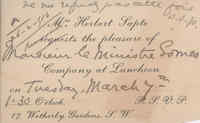 Mr. Herbert Sapte
requests the pleasure of
Monsieur le Ministre Gomes
Company at Luncheon
on Tuesday, March 7th
1.30 O'clock. R.S.V.P.
17. Wetherby Gardens. S.W.